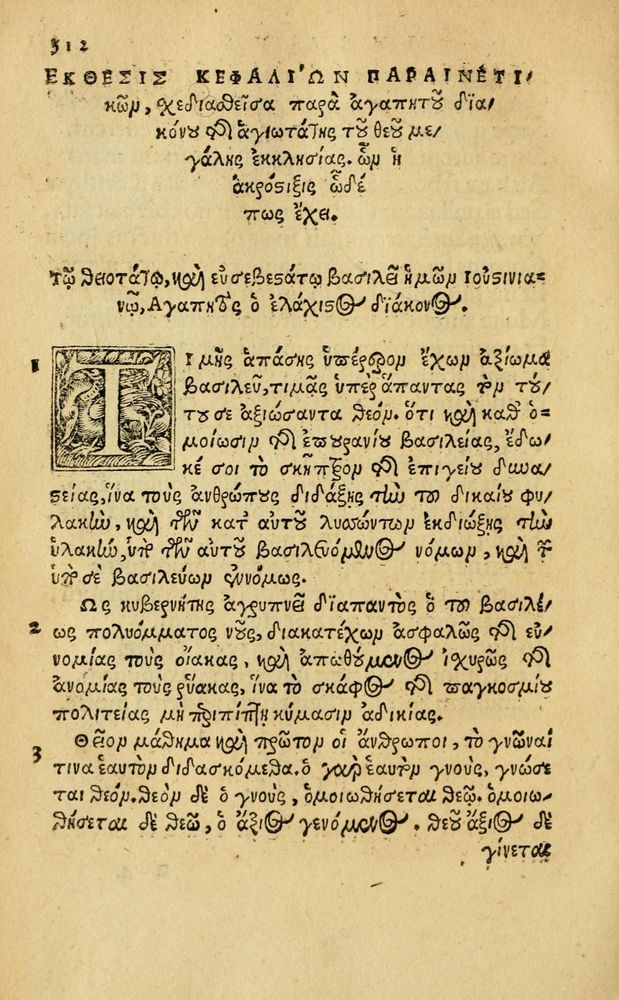 312
ΕΚΘΕΣΙΣ ΚΕΦΑΛΙΏΝ ΠΑΡΑΙΝΕΤΙ-
κῶν, σχεδιαθεῖσα παρὰ ἀγαπητοῦ δια-
κόνου τῆς ἁγιωτάτης τοῦ θεοῦ με-
γάλης ἐκκλησίας. ὧν ἡ
ἀκρόστιξις ὧδέ
πως ἔχει.
τῷ θειοτάτῳ, καὶ εὐσεβεστάτῳ βασιλεῖ ἡμῶν Ιουστινια=
νῷ, Αγαπητὸς ὁ ἐλάχιστος διάκονος.
1 Τιμῆς ἁπάσης ὑπέρτερον ἔχων ἀξίωμα
βασιλεῦ, τιμᾶς ὑπὲρ ἅπαντας τὸν τού-
του σε ἀξιώσαντα θεόν. ὅτι καὶ καθ' ὁ=
μοίωσιν τῆς ἐπουρανίου βασιλείας, ἔδω-
κέ σοι τὸ σκῆπτρον τῆς ἐπιγείου δυνα-
στείας, ἵνα τοὺς ἀνθρώπους διδάξῃς τὴν τοῦ δικαίου φυ-
λακὴν, καὶ τῶν κατ' αὐτοῦ λυσσώντων ἐκδιώξῃς τὴν
ὑλακὴν, ὑπὸ τῶν αὐτοῦ βασιλευόμενος νόμων, καὶ τῶν
ὑπὸ σὲ βασιλεύων ἐννόμως.
Ως κυβερνήτης ἀγρυπνεῖ διαπαντὸς ὁ τοῦ βασιλέ-
2 ως πολυόμματος νοῦς, διακατέχων ἀσφαλῶς τῆς εὐ-
νομίας τοὺς οἴακας, καὶ ἀπωθούμενος ἰσχυρῶς τῆς
ἀνομίας τοὺς ῥύακας, ἵνα τὸ σκάφος τῆς παγκοσμίου
πολιτείας μὴ περιπίπτῃ κύμασιν ἀδικίας.
3 Θεῖον μάθημα καὶ πρῶτον οἱ ἄνθρωποι, τὸ γνῶναί
τινα ἑαυτὸν διδασκόμεθα. ὁ γὰρ ἑαυτὸν γνοὺς, γνώσε
ται θεόν. θεὸν δὲ ὁ γνοὺς, ὁμοιωθήσεται θεῷ. ὁμοιω-
θήσεται δὲ θεῷ, ὁ ἄξιος γενόμενος. θεοῦ ἄξιος δὲ
γίνεται